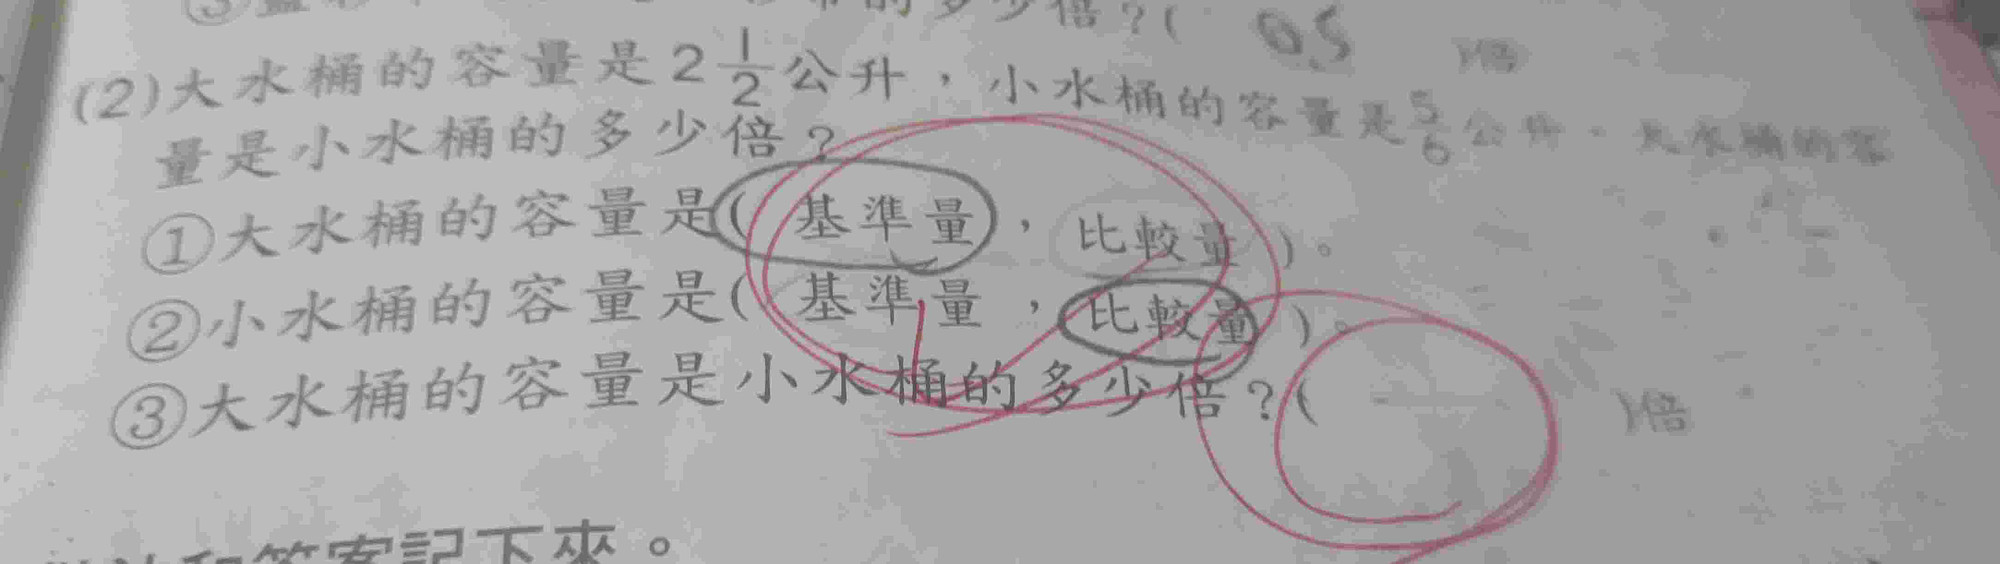 的多少倍?( 0.5 )倍
(2)大水桶的容量是2 1/2公升,小水桶的容量是5/6公升。大水桶的容
量是小水桶的多少倍?
①大水桶的容量是(基準量,比較量)。
②小水桶的容量是(基準量,比較量)。
③大水桶的容量是小水桶的多少倍?( )倍
和答案記下來。